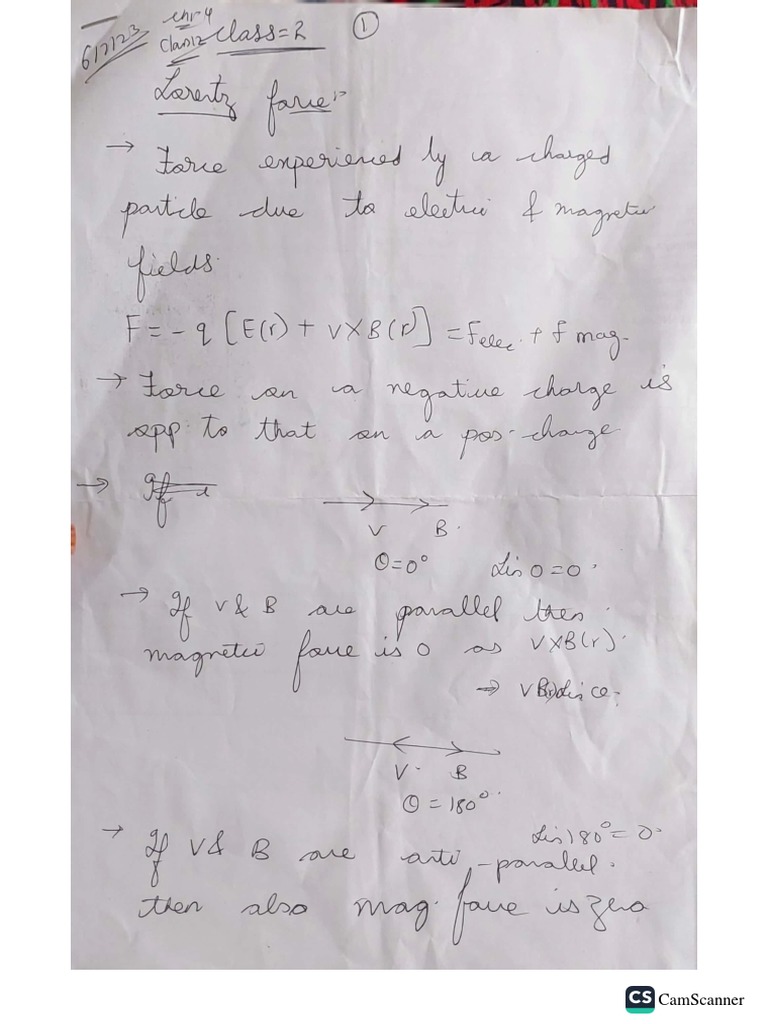 6/7/23
chr-4
Class 12 Class = 2 1
Lorentz force :-
→ Force experienced by a charged
particle due to electric & magnetic
fields.
F = - q [E(r) + V X B(r)] = Felec. + f mag.
→ Force on a negative charge is
opp. to that on a pos. charge
→ If
V B.
θ = 0° Sin 0 = 0.
→ If V & B are parallel then
magnetic force is 0 as V X B(r).
→ V B(r) Sin θ.
V. B
θ = 180°.
Sin 180° = 0.
→ If V & B are anti-parallel.
then also mag. force is zero
CS CamScanner